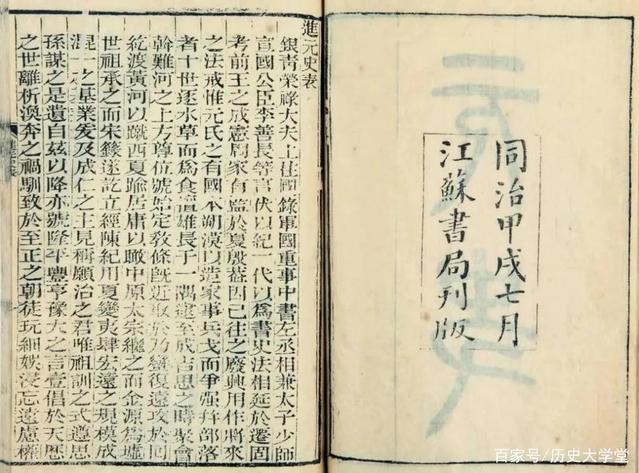 同治甲戌七月
江蘇書局刊版
進元史表
銀青榮祿大夫上柱國錄軍國重事中書左丞相兼太子少師
宣國公臣李善長等言伏以紀一代以爲書史法相延於遷固
考前王之成憲周家有監於夏殷葢因已往之廢興用作將來
之法戒惟元氏之有國本朔漠以造家事兵戈而爭强幷部落
者十世逐水草而爲食擅雄長于一隅逮至成吉思之時聚會
斡難河之上方尊位號始定敎條旣近取於乃蠻復遠攻於回
紇渡黃河以蹴西夏踰居庸以瞰中原太宗繼之而金源爲墟
世祖承之而宋籙遂訖立經陳紀用夏變夷肆宏遠之規模成
混一之基業爰及成仁之主見稱願治之君唯祖訓之式遵思
孫謀之是遺自茲以降亦號隆平豐亨豫大之言壹倡於天曆
之世離析渙奔之禍馴致於至正之朝徒玩細娛浸忘遠慮權
百家号/历史大学堂